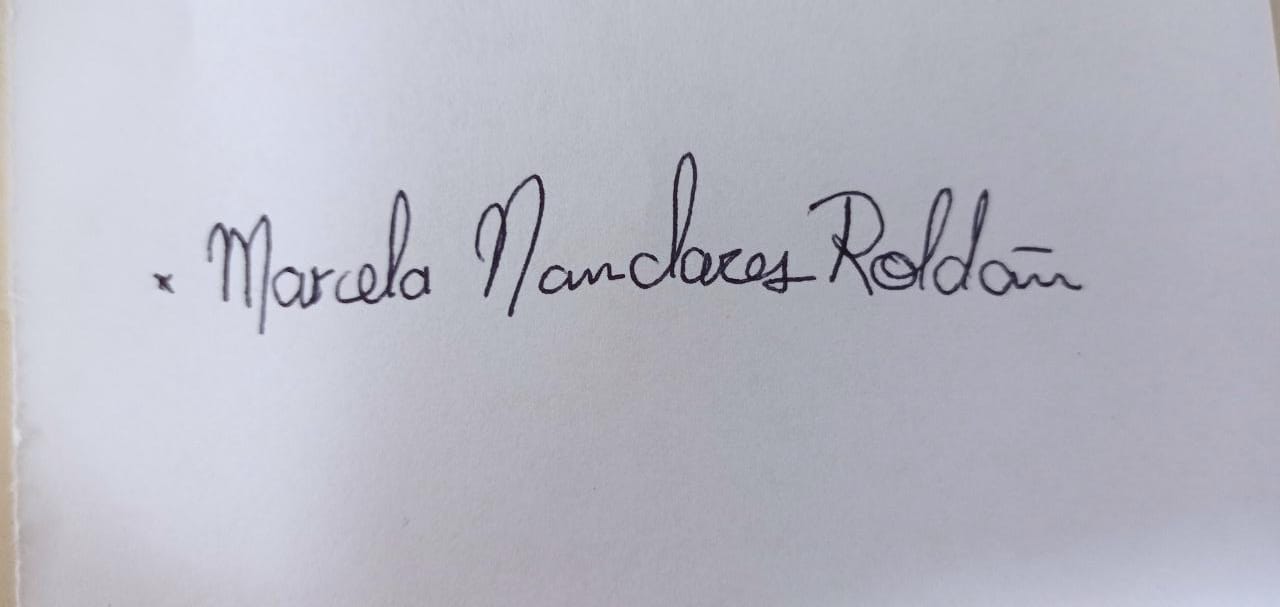 x Marcela Nanclares Roldán